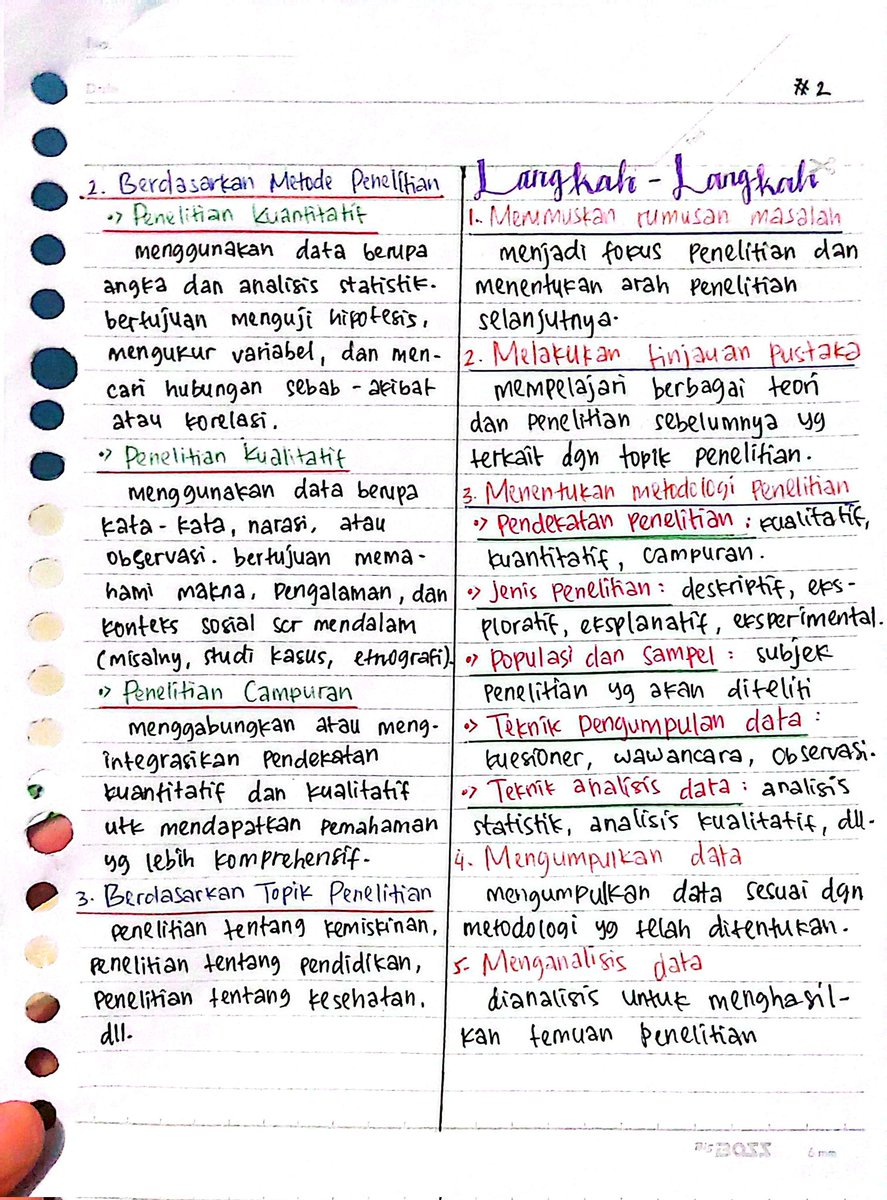 # 2
2. Berdasarkan Metode Penelitian
•> Penelitian Kuantitatif
menggunakan data berupa
angka dan analisis statistik.
bertujuan menguji hipotesis,
mengukur variabel, dan men-
cari hubungan sebab - akibat
atau korelasi.
•> Penelitian Kualitatif
menggunakan data berupa
kata - kata, narasi, atau
observasi. bertujuan mema-
hami makna, pengalaman, dan
konteks sosial scr mendalam
(misalny, studi kasus, etnografi).
•> Penelitian Campuran
menggabungkan atau meng-
integrasikan pendekatan
kuantitatif dan kualitatif
utk mendapatkan pemahaman
yg lebih komprehensif.
3. Berdasarkan Topik Penelitian
penelitian tentang kemiskinan,
penelitian tentang pendidikan,
penelitian tentang kesehatan,
dll.
Langkah - Langkah
1. Merumuskan rumusan masalah
menjadi fokus penelitian dan
menentukan arah penelitian
selanjutnya.
2. Melakukan tinjauan pustaka
mempelajari berbagai teori
dan penelitian sebelumnya yg
terkait dgn topik penelitian.
3. Menentukan metodologi penelitian
•> Pendekatan penelitian : kualitatif,
kuantitatif, campuran.
•> Jenis penelitian : deskriptif, eks-
ploratif, eksplanatif, eksperimental.
•> Populasi dan sampel : subjek
penelitian yg akan diteliti
•> Teknik pengumpulan data :
kuesioner, wawancara, observasi.
•> Teknik analisis data : analisis
statistik, analisis kualitatif, dll.
4. Mengumpulkan data
mengumpulkan data sesuai dgn
metodologi yg telah ditentukan.
5. Menganalisis data
dianalisis untuk menghasil-
kan temuan penelitian
6 mm